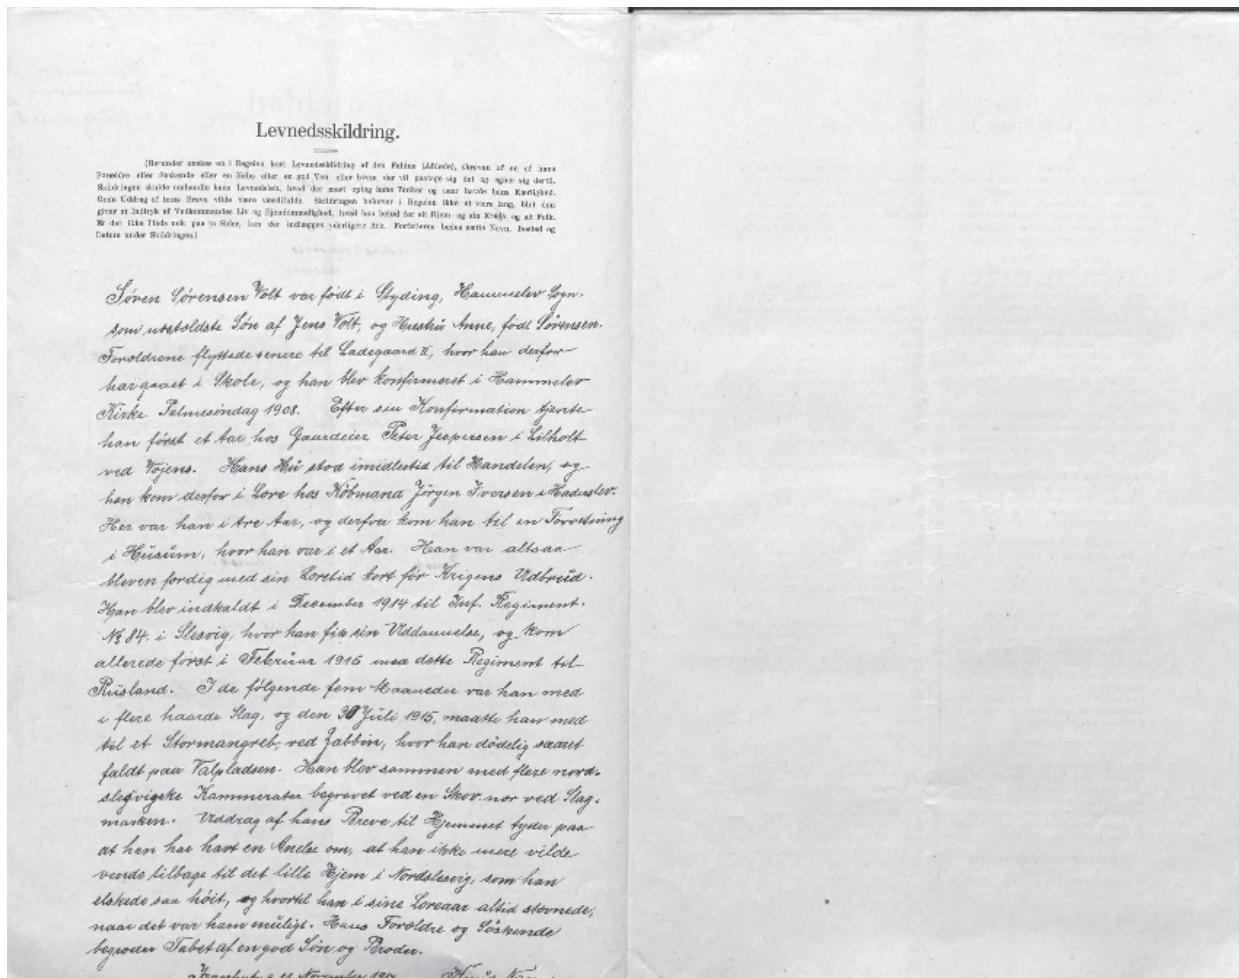 Levnedsskildring.
(Herunder ønskes en i Regelen kort Levnedsskildring af den Faldne (Afdøde), skreven af en af hans
Forældre eller Søskende eller en Nabo eller en god Ven eller hvem der vil paatage sig det og egner sig dertil.
Skildringen skulde omhandle hans Levnedsløb, hvad der mest optog hans Tanker og især havde hans Kærlighed.
Gode Uddrag af hans Breve vilde være værdifulde. Skildringen behøver i Regelen ikke at være lang, blot den
giver et Indtryk af Vedkommendes Liv og Ejendommelighed, hvad han betød for sit Hjem og sin Kreds og sit Folk.
Er der ikke Plads nok paa to Sider, kan der indlægges yderligere Ark. Forfatteren bedes sætte Navn, Bosted og
Datum under Skildringen.)
Søren Sørensen Volt var født i Styding, Hammelev Sogn,
som næstældste Søn af Jens Volt, og Hustrú Anne, født Sørensen.
Forældrene flyttede senere til Ladegaard II, hvor han derfor
har gaaet i Skole, og han blev konfirmeret i Hammelev
Kirke Palmesøndag 1908. Efter sin Konfirmation tjente
han først et Aar hos Gaardeier Peter Jespersen i Lilholt
ved Vojens. Hans Hú stod imidlertid til Handelen, og
han kom derfor i Lære hos Købmand Jörgen Iversen i Haderslev.
Her var han i tre Aar, og derfra kom han til en Forretning
i Húsúm, hvor han var i et Aar. Han var altsaa
bleven færdig med sin Læretid kort før Krigens Udbrúd.
Han blev indkaldt i December 1914 til Inf. Regiment.
No 84. i Slesvig, hvor han fik sin Uddannelse, og kom
allerede først i Febrúar 1915 med dette Regiment til
Rúsland. I de følgende fem Maaneder var han med
i flere haarde Slag, og den 30 Júli 1915, maatte han med
til et Stormangreb, ved Jabbin, hvor han dödelig saaret
faldt paa Valpladsen. Han blev sammen med flere nord-
slesvigske Kammerater begravet ved en Skov nær ved Slag-
marken. Uddrag af hans Breve til Hjemmet tyder paa
at han har havt en Anelse om, at han ikke mere vilde
vende tilbage til det lille Hjem i Nordslesvig, som han
elskede saa höit, og hvortil han i sine Læreaar altid stævnede,
naar det var ham múligt. Hans Forældre og Söskende
begræder Tabet af en god Søn og Broder.
November